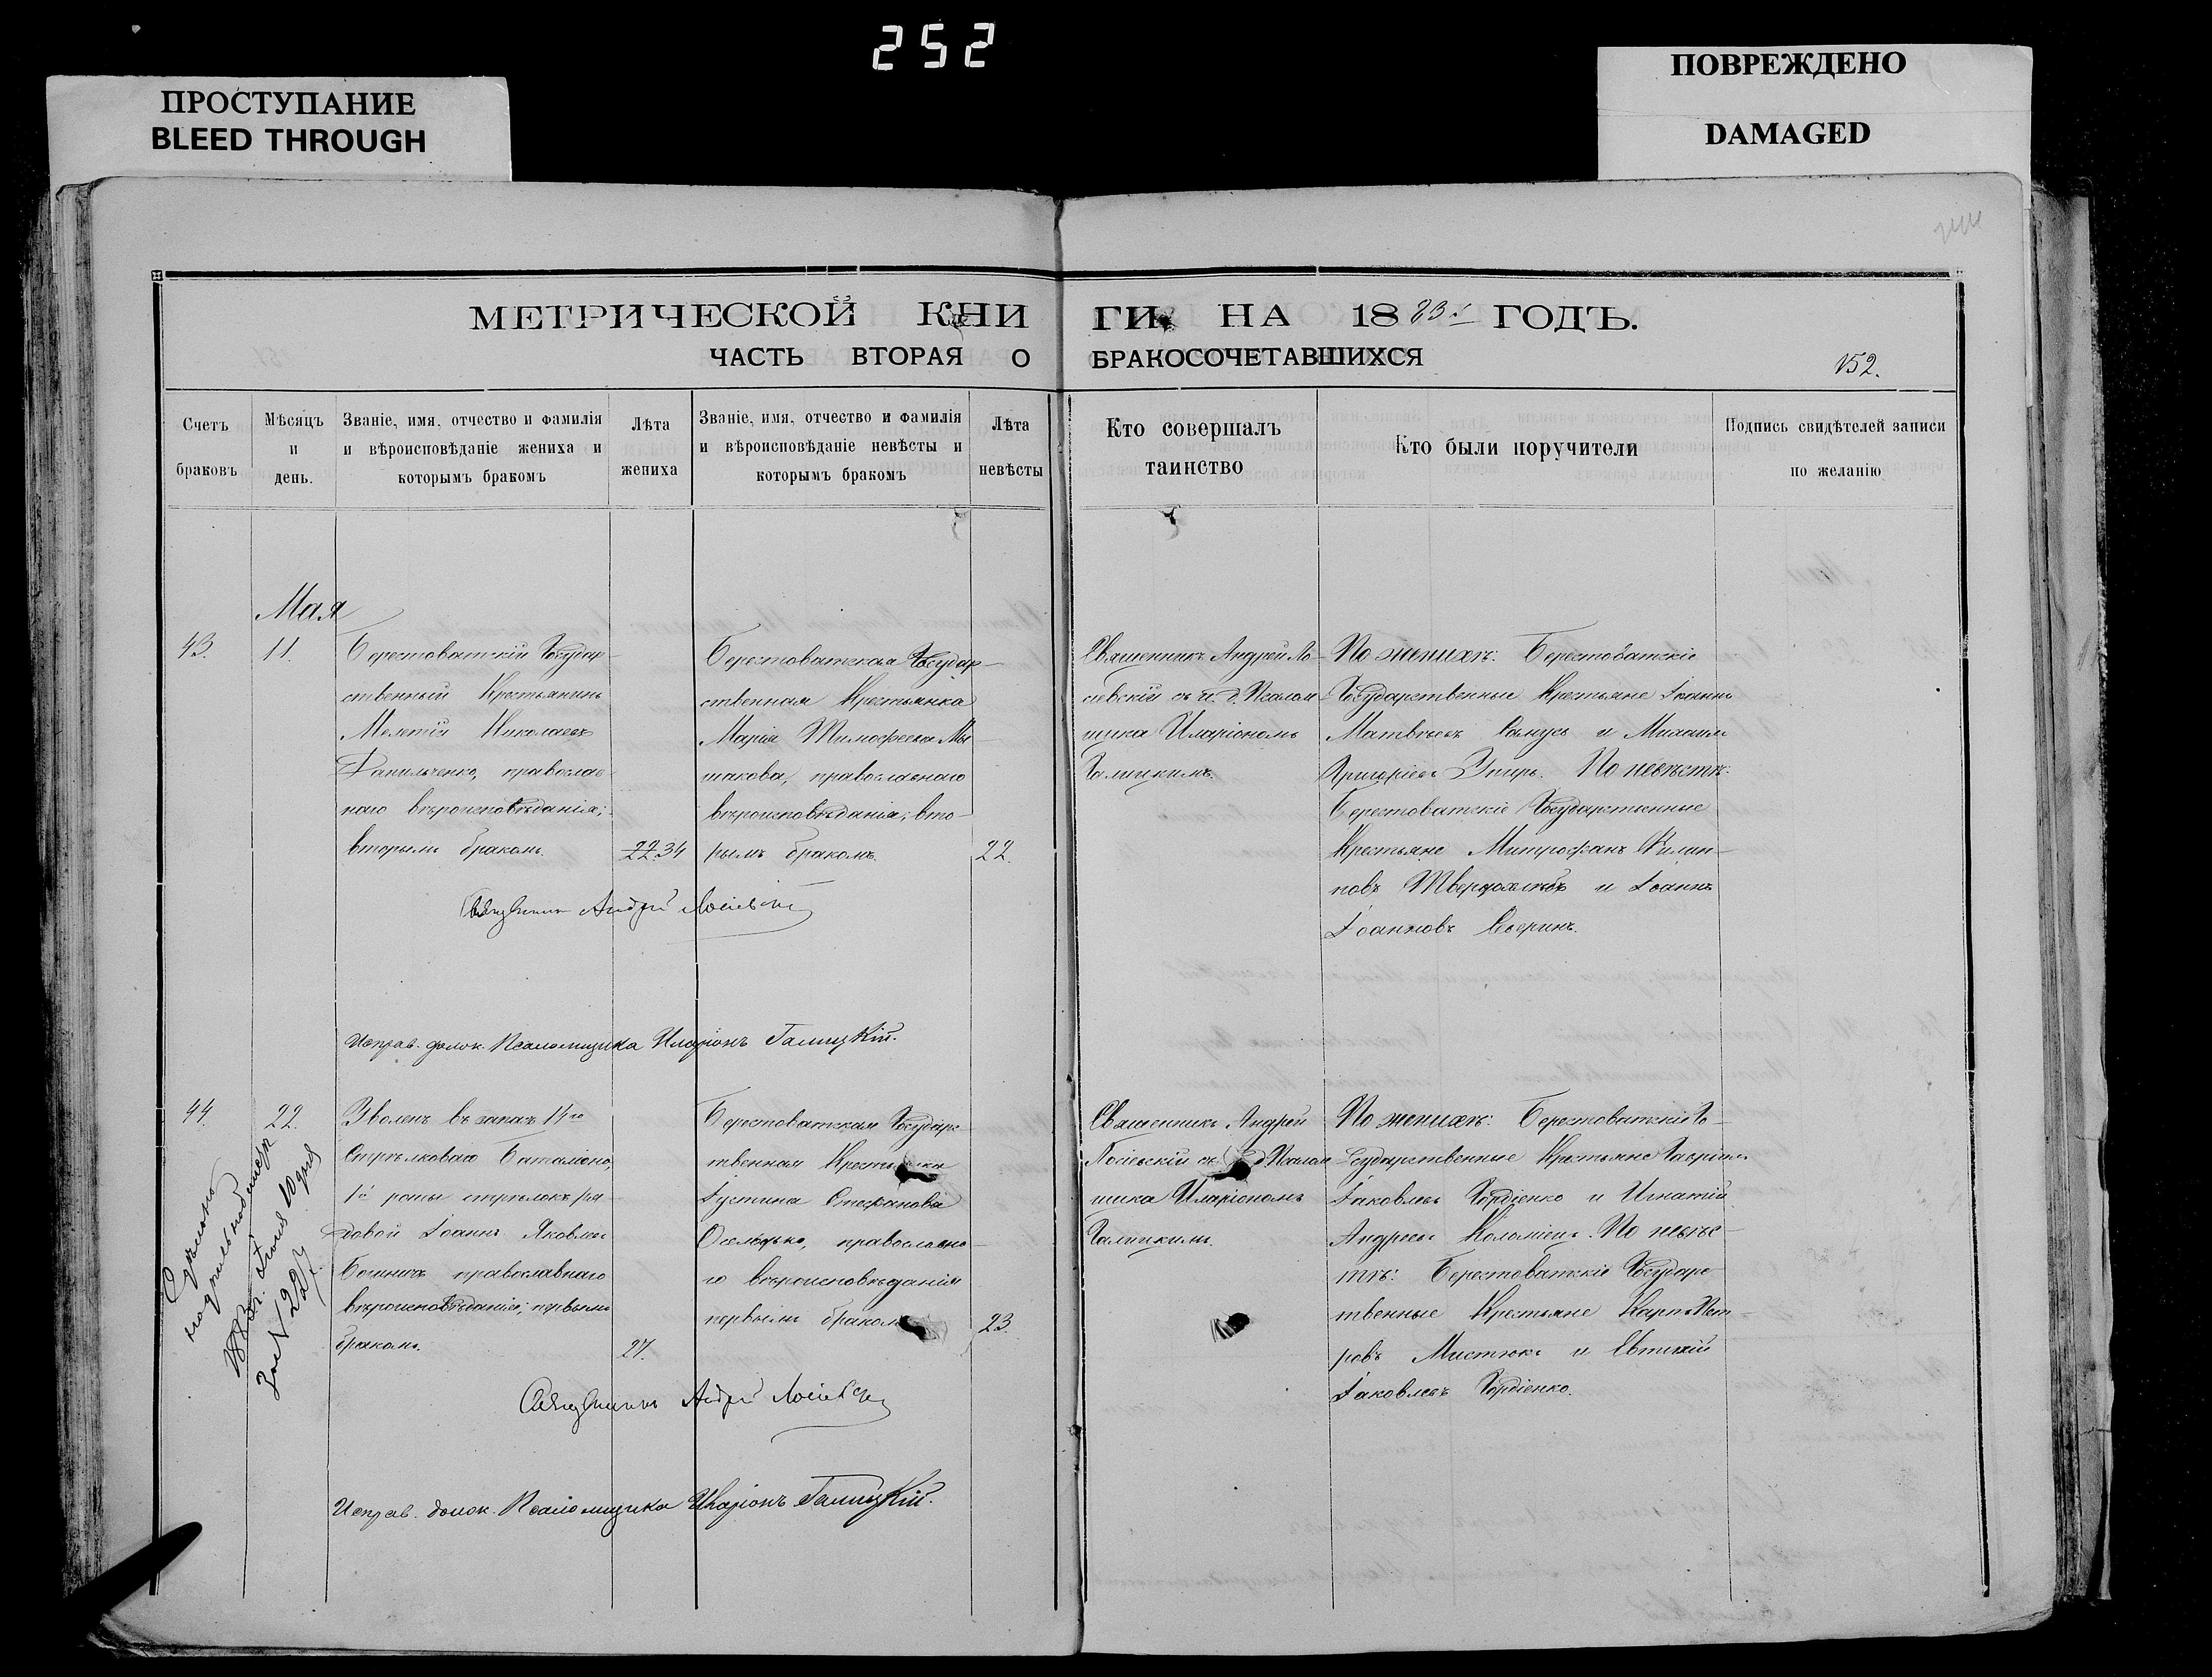 252
ПРОСТУПАНИЕ
BLEED THROUGH
ПОВРЕЖДЕНО
DAMAGED
МЕТРИЧЕСКОЙ КНИ ГИ НА 1883 ГОДЪ.
ЧАСТЬ ВТОРАЯ О БРАКОСОЧЕТАВШИХСЯ
152.
Счетъ
браковъ
Мѣсяцъ
и
день.
Званіе, имя, отчество и фамилія
и вѣроисповѣданіе жениха и
которымъ бракомъ
Лѣта
жениха
Званіе, имя, отчество и фамилія
и вѣроисповѣданіе невѣсты и
которымъ бракомъ
Лѣта
невѣсты
Кто совершалъ
таинство
Кто были поручители
Подпись свидѣтелей записи
по желанію
Мая
43.
11.
Берестоватскій Государ-
ственный Крестьянинъ
Мелетій Николаевъ
Данильченко, православ-
наго вѣроисповѣданія;
вторымъ бракомъ.
22. 34
Берестоватская Государ-
ственная Крестьянка
Марія Тимофеева Мы-
шакова, православнаго
вѣроисповѣданія, вто-
рымъ бракомъ.
22.
Священникъ Андрей Ло-
сіевскій съ и. д. Псалом-
щика Иларіономъ
Галицкимъ.
По женихѣ: Берестоватскіе
Государственные Крестьяне Іоаннъ
Матвѣевъ и Михаилъ
Григорьевъ По невѣстѣ:
Берестоватскіе Государственные
Крестьяне Митрофанъ Филип-
повъ Твердохлѣбъ и Іоаннъ
Іоанновъ
Священникъ Андрей Лосіевскій
Исправ. долж. Псаломщика Иларіонъ Галицкій.
44.
22.
въ запасъ 14го
Стрѣлковаго Баталіона,
1й роты стрѣлокъ ря-
довой Іоаннъ Яковлевъ
православнаго
вѣроисповѣданія; первымъ
бракомъ.
27.
Берестоватская Государс-
твенная Крестьянка
Іустина Стефанова
Оселедько, православна-
го вѣроисповѣданія
первымъ бракомъ
23.
Священникъ Андрей
Лосіевскій съ Псалом-
щика Иларіономъ
Галицкимъ.
По женихѣ: Берестоватскіе Го-
сударственные Крестьяне Гавріилъ
Іаковлевъ Гордіенко и Игнатій
Андреевъ Коломіецъ. По невѣс-
тѣ: Берестоватскіе Государс-
твенные Крестьяне Карпъ Пет-
ровъ Мистюкъ и Евтихій
Іаковлевъ Гордіенко.
Священникъ Андрей Лосіевскій
Исправ. долж. Псаломщика Иларіонъ Галицкій.
Іюня 10 дня
За № 227.